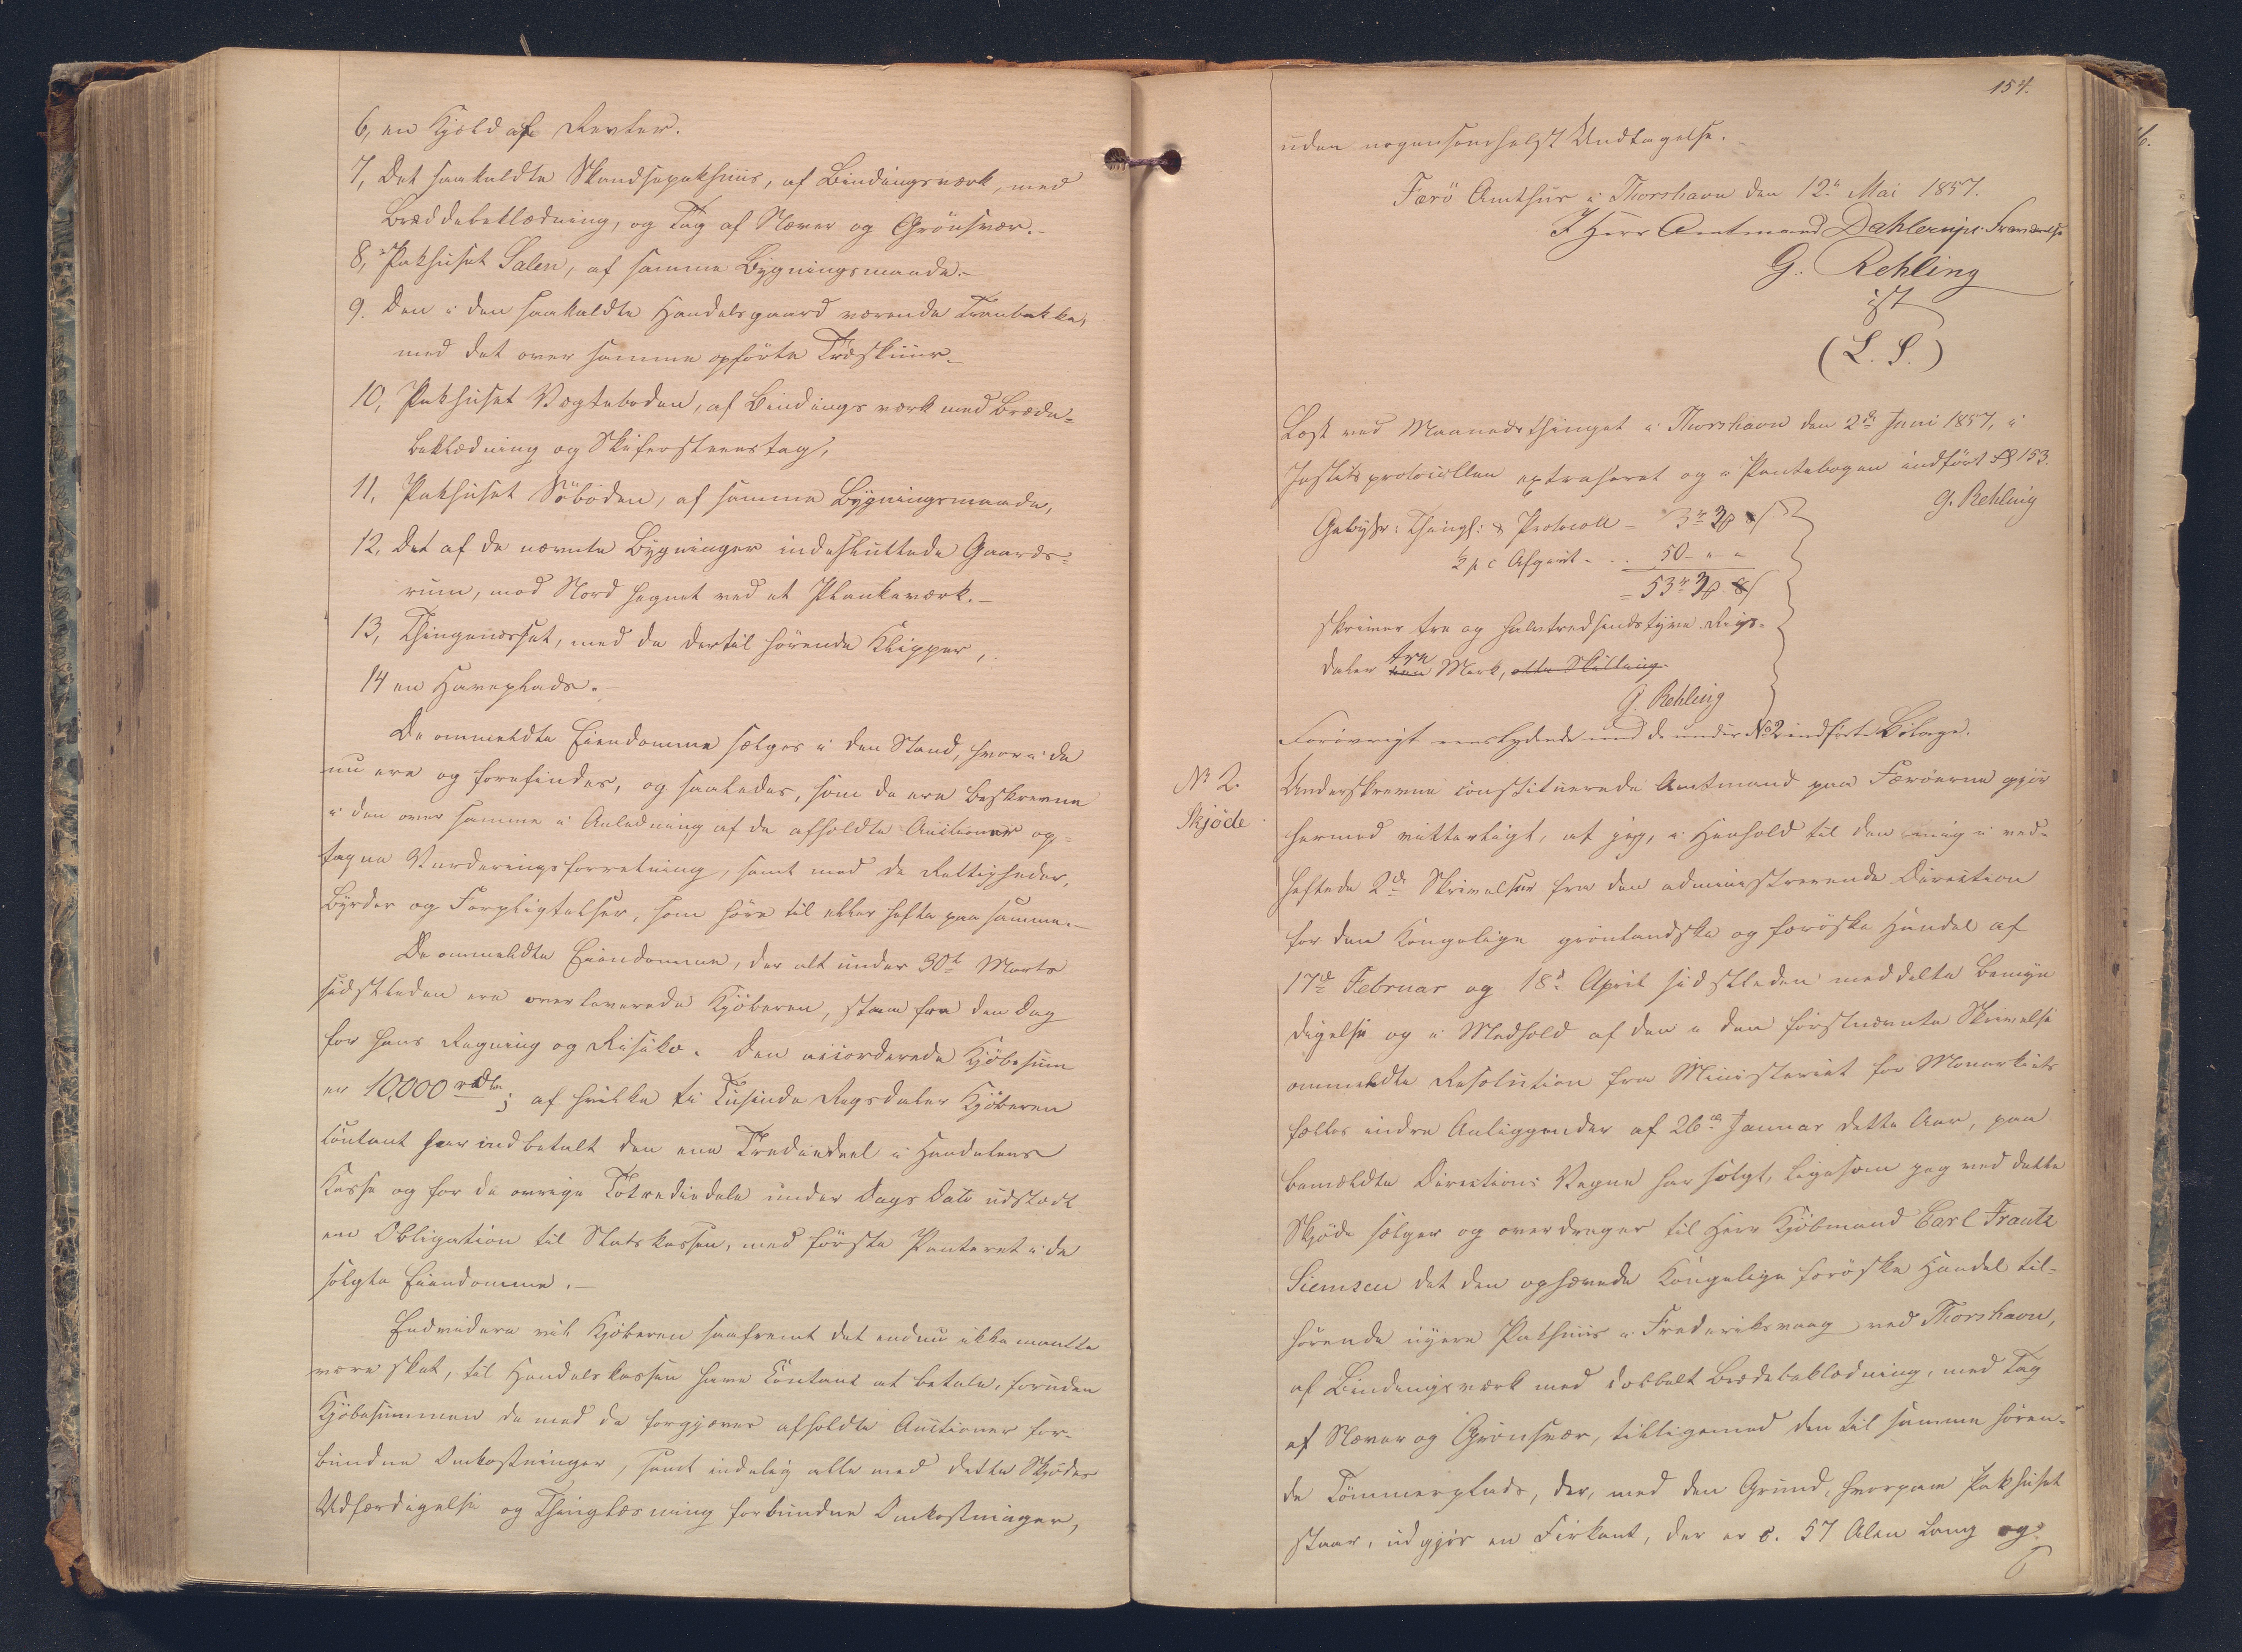 6, en Kjæld af Revter.
7, Det saakaldte Skandsepakhuus, af Bindingsværk, med
Bræddebeklædning, og Tag af Næver og Grönsvær.-
8, Pakhuset Salen, af samme Bygningsmaade.-
9. Den i den saakaldte Handelsgaard værende Tranbakke,
med det over samme opförte Træskuur.-
10, Pakhuset Vægteboden, af Bindingsværk med Brædde=
beklædning og Skifersteenstag,
11, Pakhuset Söboden, af samme Bygningsmaade,
12, Det af de nævnte Bygninger indesluttede Gaards=
rum, mod Nord hegnet ved et Plankeværk.-
13, Thinganæsset, med de dertil hörende Klipper,
14 en Haveplads.
De ommeldte Eiendomme sælges i den Stand, hvori de
nu ere og forefindes, og saaledes, som de ere beskrevne
i den over samme i Anledning af de afholdte Auctioner op=
tagne Vurderingsforretning, samt med de Rettigheder,
Byrder og Forpligtelser, som höre til eller hefte paa samme.-
De ommeldte Eiendomme, der alt under 30te Marts
sidstleden ere overleverede Kjöberen, staae fra den Dag
for hans Regning og Risiko. Den accorderede Kjöbesum
er 10,000 rdlr; af hvilke ti Tusinde Rigsdaler Kjöberen
contant har indbetalt den ene Trediedeel i Handelens
Kasse og for de övrige Totrediedele under Dags Dato udstædt
en Obligation til Statskassen, med förste Panteret i de
solgte Eiendomme.-
Endvidere vil Kjöberen saafremt det endnu ikke maatte
være skeet, til Handelskassen have Contant at betale, foruden
Kjöbesummen de med de forgjæves afholdte Auctioner for-
bundne Omkostninger, samt endelig alle med dette Skjödes
Udfærdigelse og Thinglæsning forbundne Omkostninger,
154.
uden nogensomhelst Undtagelse.
Færö Amthuus i Thorshavn den 12te Mai 1857.
I Herr Amtmand Dahlerups Fraværelse
G. Rehling
cst
(L. S.)
Læst ved Maanedsthinget i Thorshavn den 2de Juni 1857, i
Justitsprotocollen extraheret og i Pantebogen indfört Fol 153.
G. Rehling
Gebyhr: Thingl: & Protocoll = 3 rd 3 ß
½ p c Afgivt - . . 50 - " - "
= 53 rd 3 ß
skriver tre og halvtredsindstyve Rigs=
daler tre Mark, otte Skilling.
G. Rehling
Forövrigt eenslydende med de under No 2 indförte Bilage.
No 2.
Skjöde
Underskrevne constituerede Amtmand paa Færöerne gjör
hermed vitterligt, at jeg, i Henhold til den mig i ved-
heftede 2de Skrivelser fra den administrerende Direction
for den Kongelige grönlandske og færöske Handel af
17de Februar og 18de April sidstleden meddelte Bemyn
digelse og i Medhold af den i den förstnævnte Skrivelse
ommeldte Resolution fra Ministeriet for Monarkiets
fælles indre Anliggender af 26de Januar dette Aar, paa
bemeldte Directions Vegne har solgt, ligesom jeg ved dette
Skjöde sælger og overdrager til Herr Kjöbmand Carl Frantz
Siemsen det den ophævede Kongelige færöske Handel til=
hörende nyere Pakhuus i Frederiksvaag ved Thorshavn,
af Bindingsværk med dobbelt Bræddebeklædning, med Tag
af Næver og Grönsvær, tilligemed den til samme hören-
de Tömmerplads, der, med den Grund, hvorpaa Pakhuset
staar, udgjör en Firkant, der er c. 57 Alen lang og